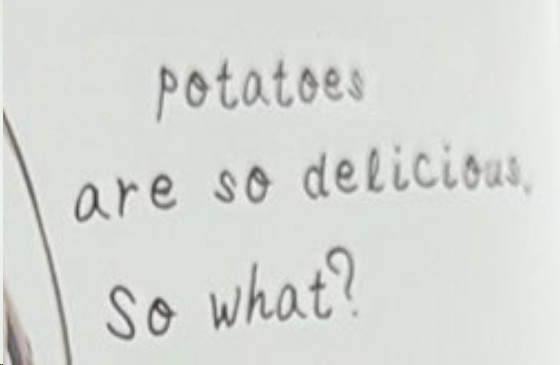 potatoes
are so delicious.
So what?